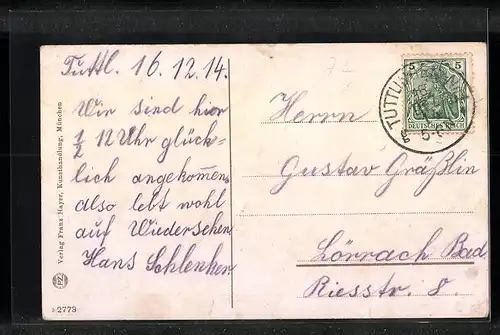 Tuttl. 16.12.14.
Wir sind hier
½ 12 Uhr glück-
lich angekommen
also lebt wohl
auf Wiedersehen
Hans Schlenker
Herrn
Gustav Gräßlin
Lörrach Bad.
Riesstr. 8.
5 5
DEUTSCHES REICH
TUTTLINGEN
Verlag Franz Hayer, Kunsthandlung, München
2773